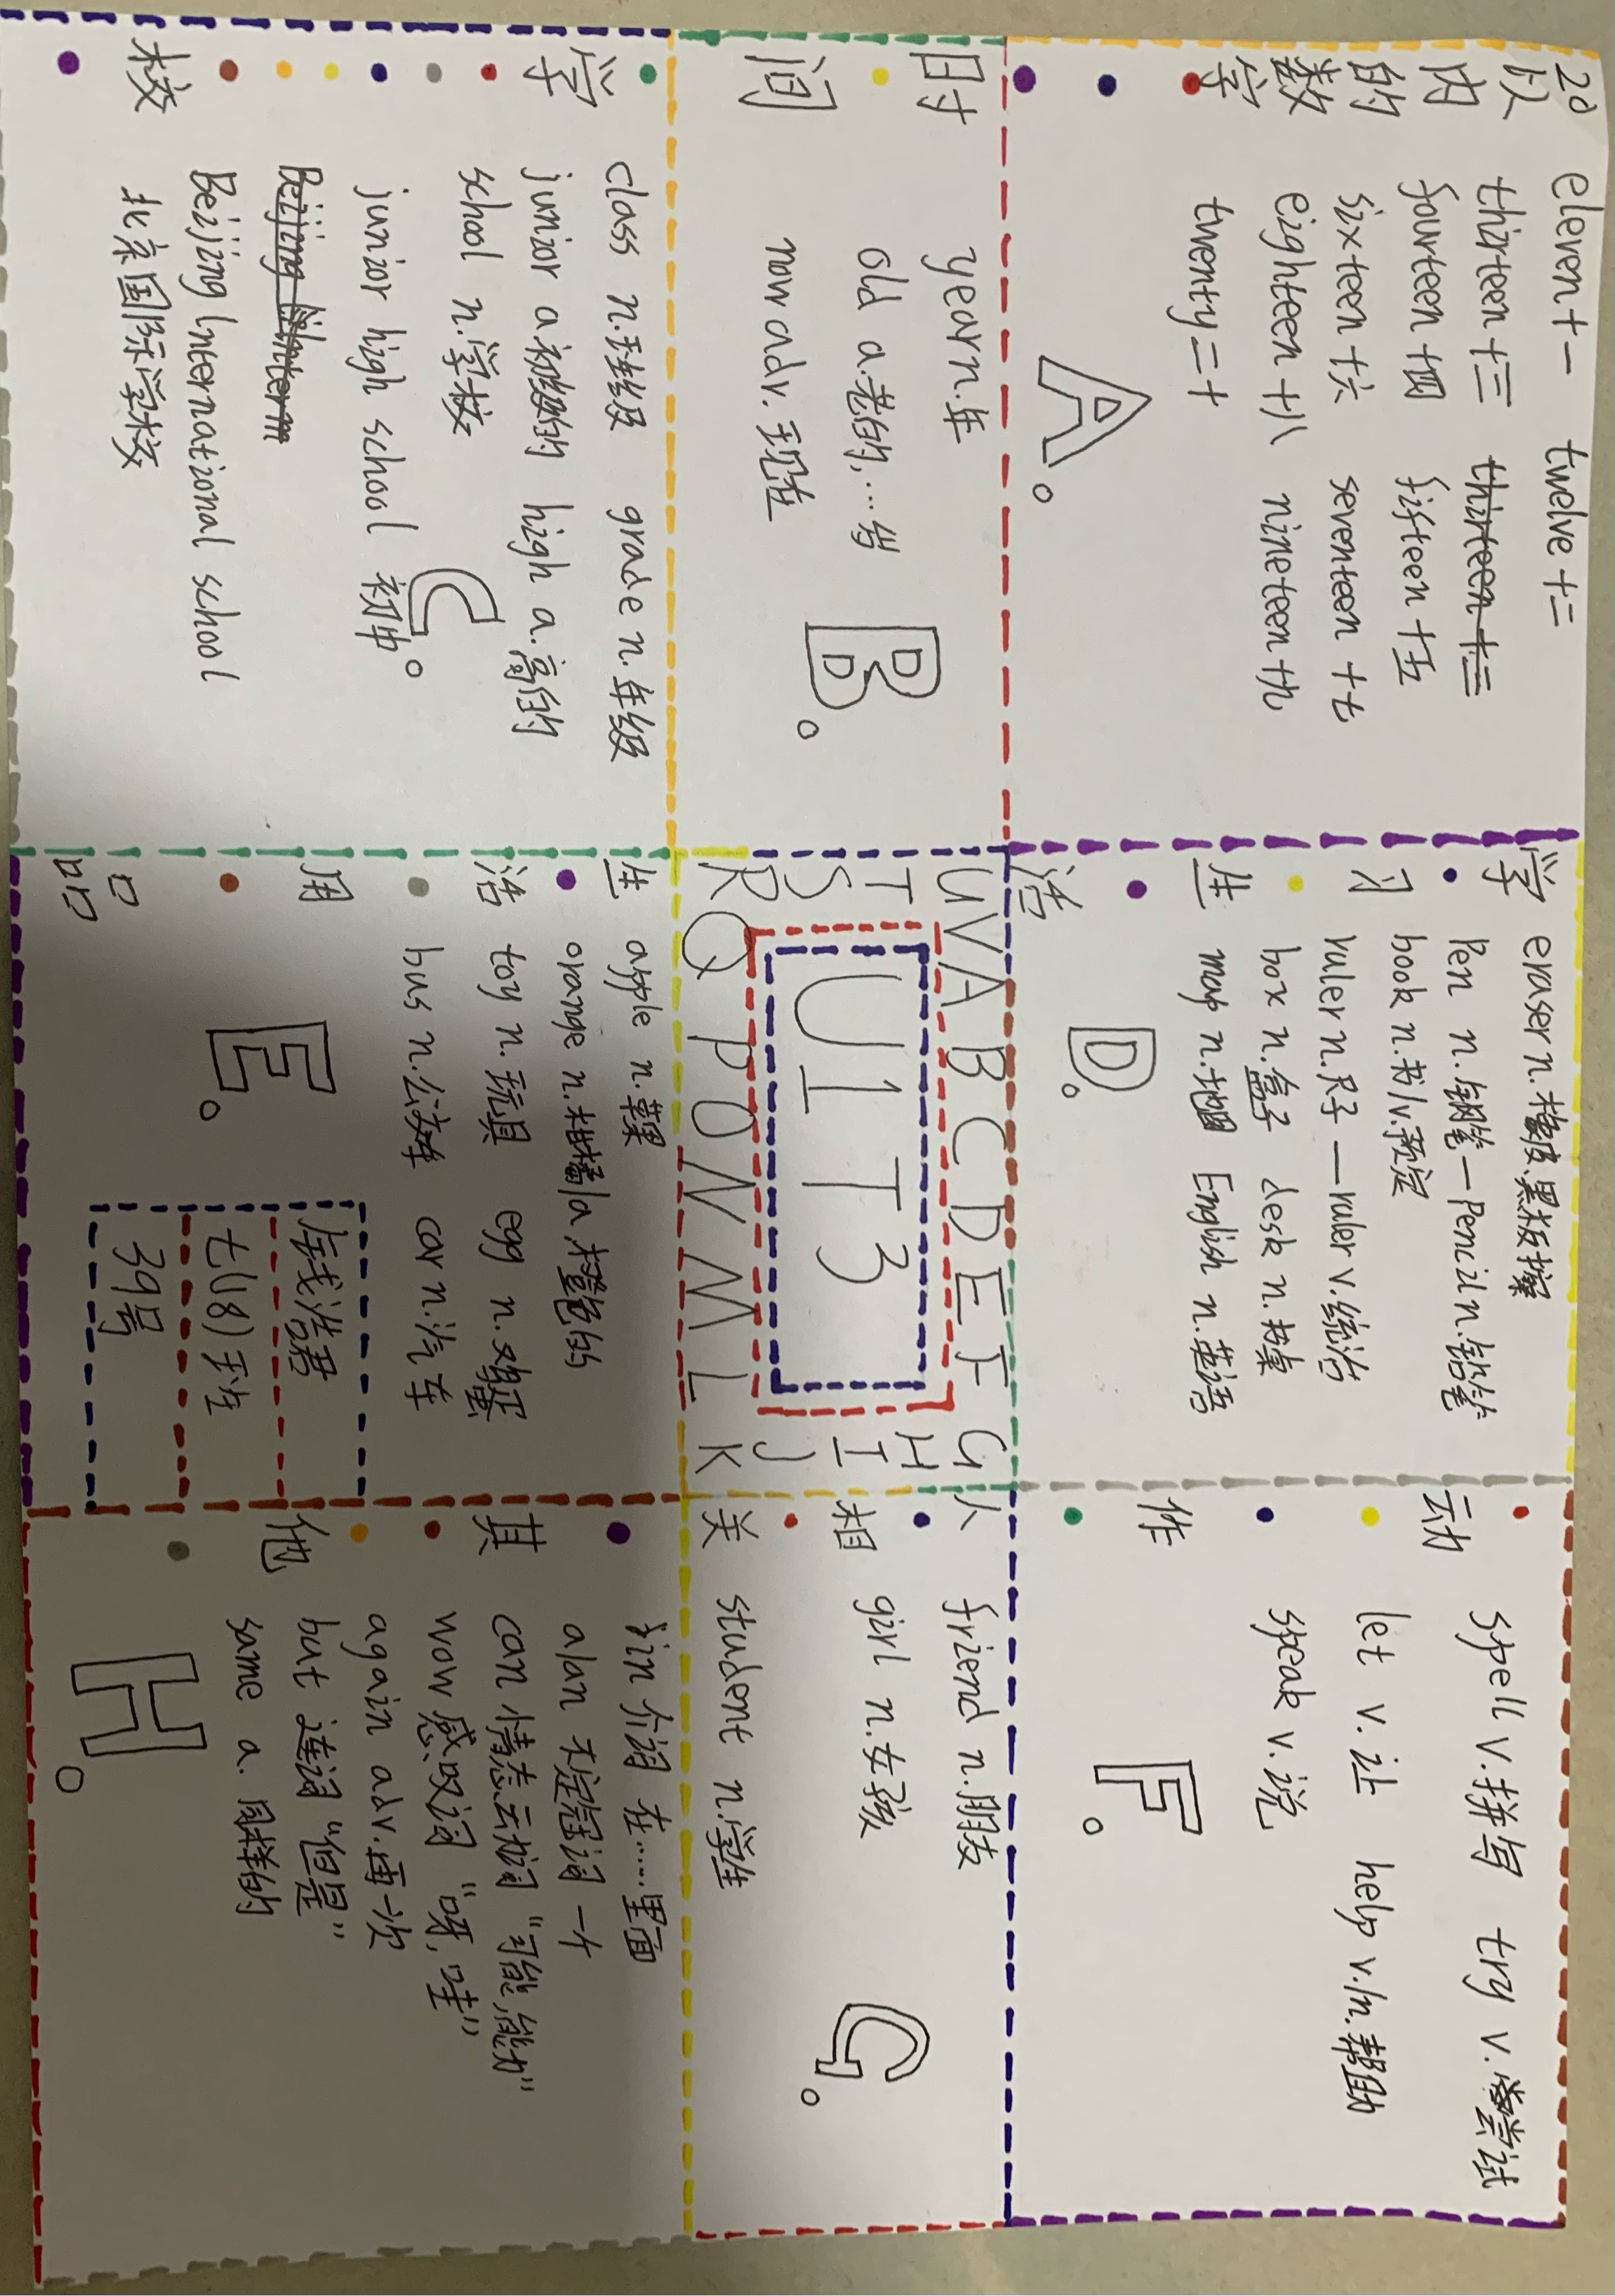 20以内的数字
eleven 十一 twelve 十二
thirteen 十三
fourteen 十四 fifteen 十五
sixteen 十六 seventeen 十七
eighteen 十八 nineteen 十九
twenty 二十
A。
学习生活
eraser n.橡皮,黑板擦
Pen n.钢笔—Pencil n.铅笔
book n.书/v.预定
ruler n.尺子—ruler v.统治
box n.盒子 desk n.书桌
map n.地图 English n.英语
D。
动作
spell v.拼写 try v.尝试
let v.让 help v./n.帮助
speak v.说
F。
时间
year n.年
old a.老的,…岁
now adv.现在
B。
U V A B C D E F G
T H
S I
R J
Q P O N M L K
U1T3
人相关
friend n.朋友
girl n.女孩
student n.学生
G。
学校
class n.班级 grade n.年级
junior a.初级的 high a.高的
school n.学校
junior high school 初中
Beijing International school
北京国际学校
C。
生活用品
apple n.苹果
orange n.柑橘/a.橙色的
toy n.玩具 egg n.鸡蛋
bus n.公交车 car n.汽车
E。
钱浩君
七(18)班
39号
其他
in 介词 在……里面
a\an 不定冠词 一个
can 情态动词 “可能,能力”
wow 感叹词 “呀,哇”
again adv.再一次
but 连词 “但是”
same a. 同样的
H。